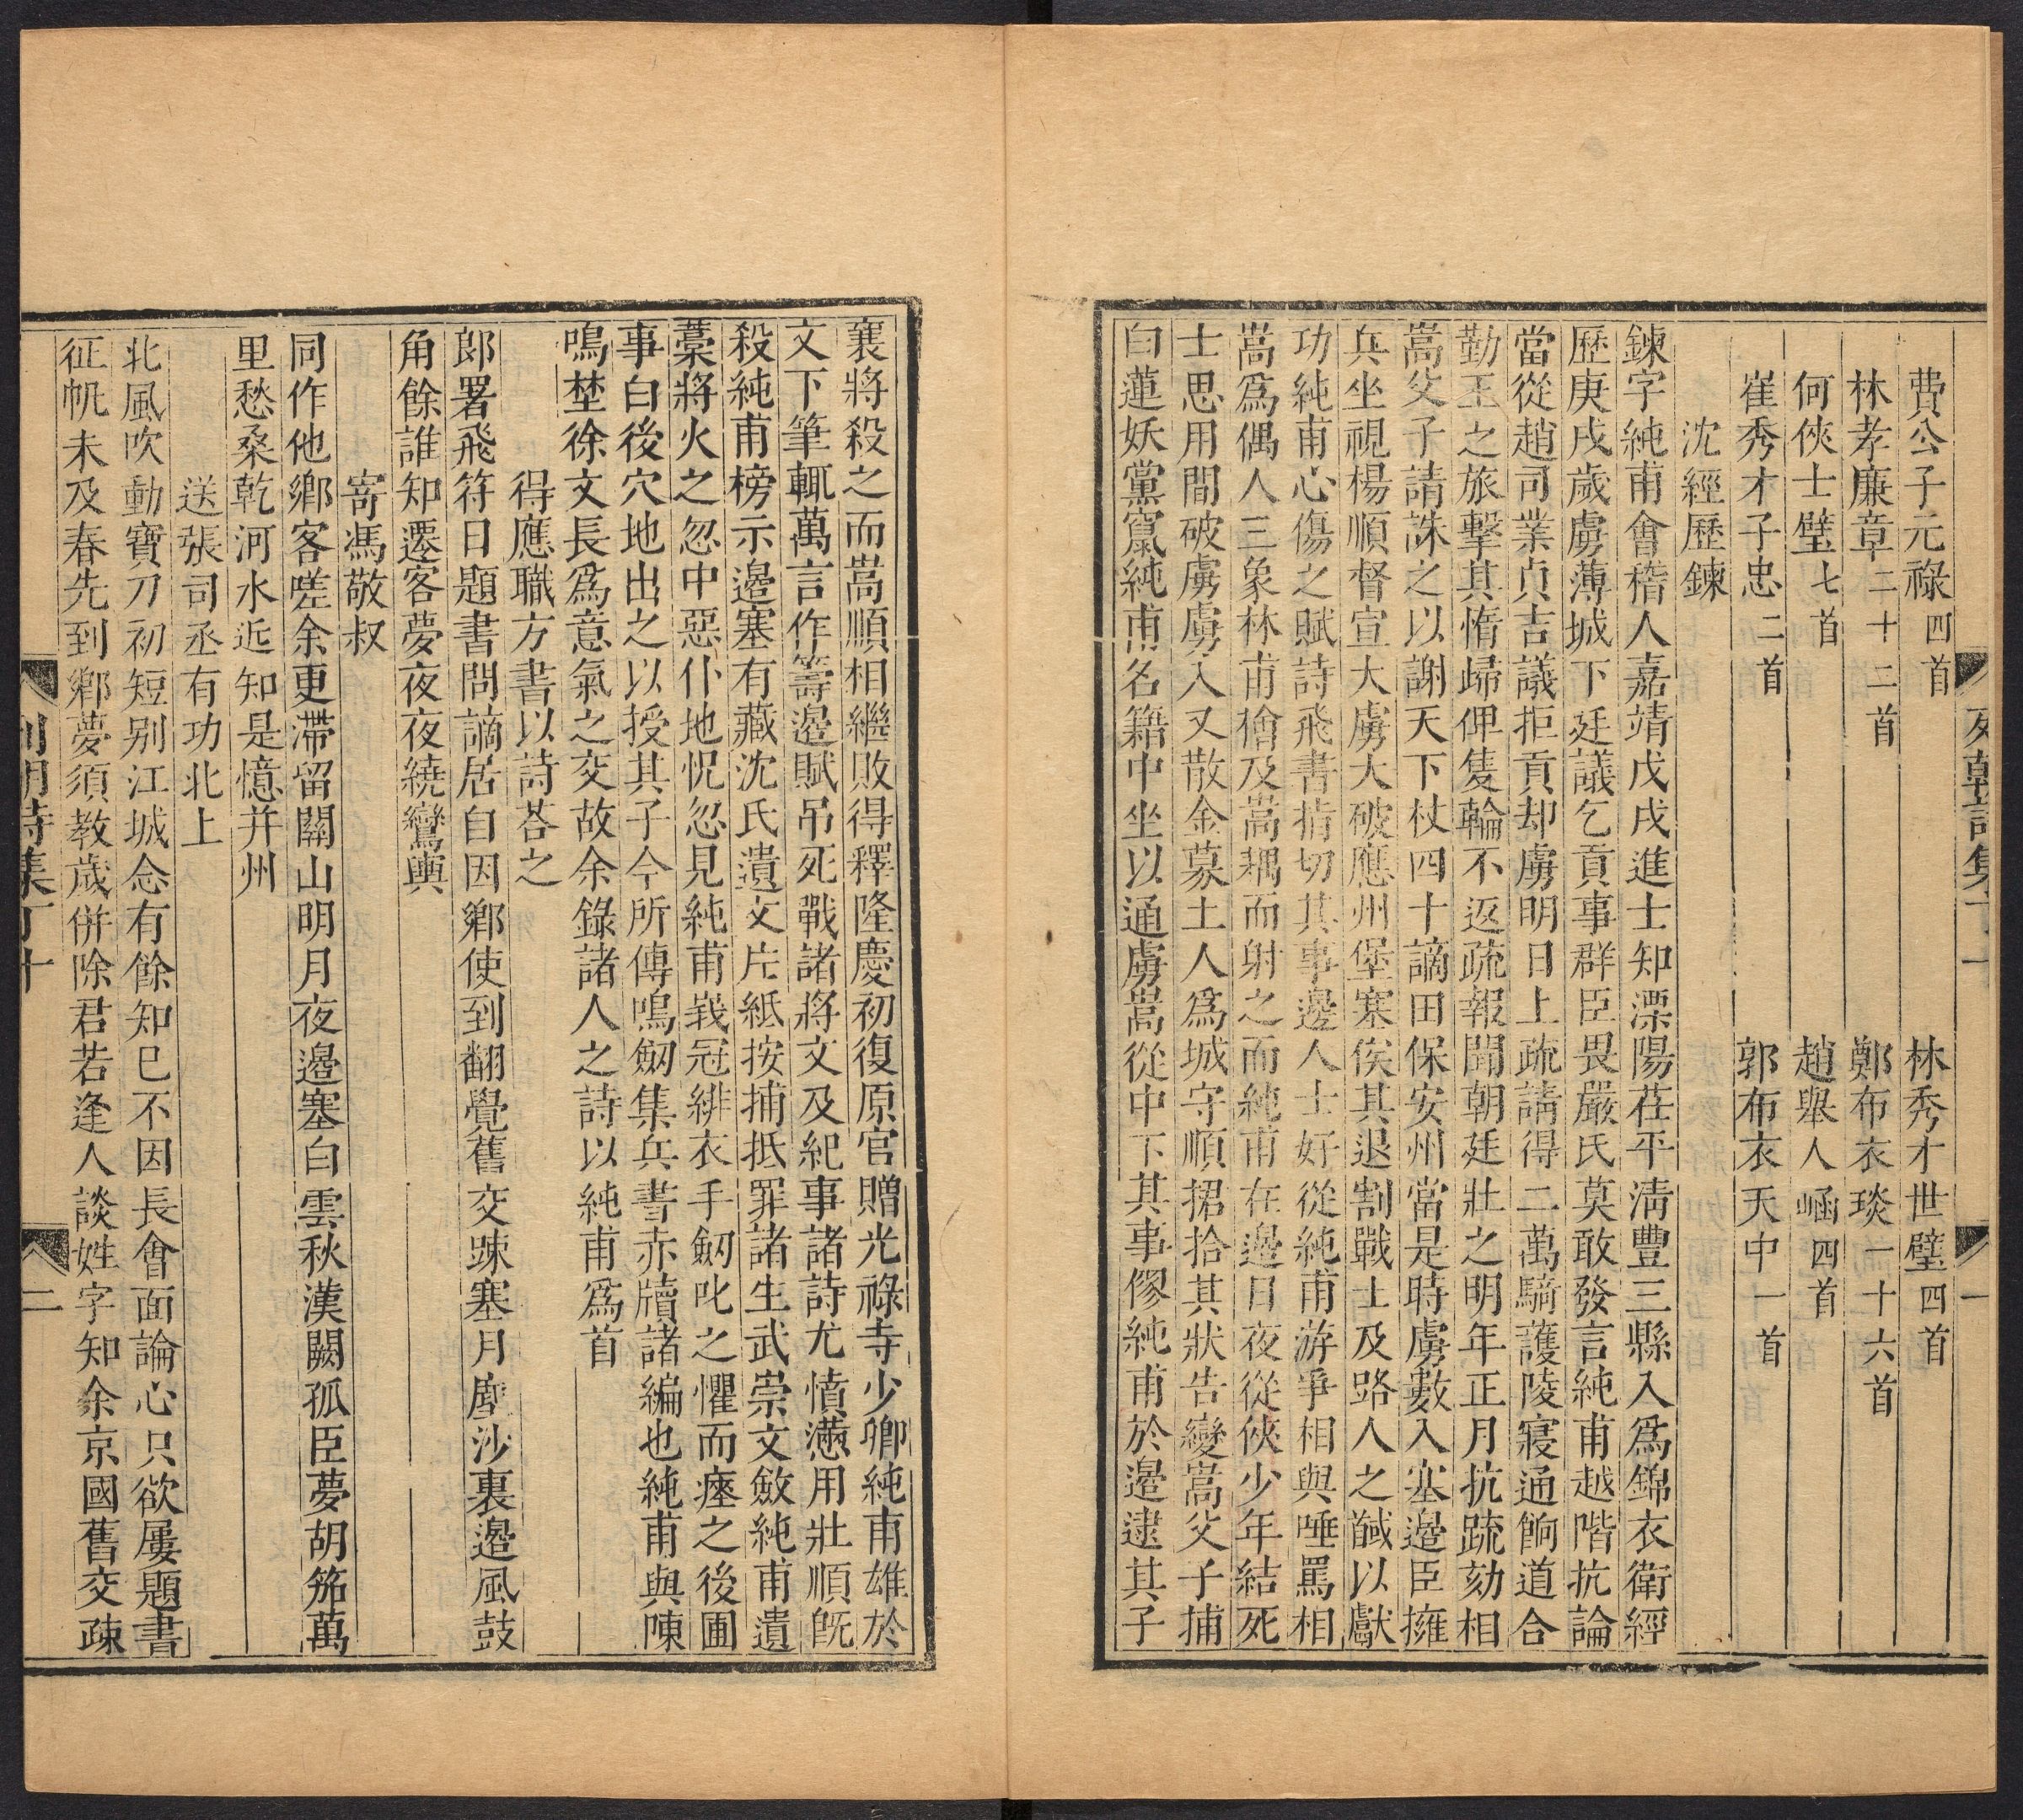 列朝詩集丁十 一
費公子元祿四首 林秀才世璧四首
林孝廉章二十二首 鄭布衣琰一十六首
何俠士璧七首 趙舉人崡四首
崔秀才子忠二首 郭布衣天中一首
沈經歷鍊
鍊字純甫會稽人嘉靖戊戌進士知溧陽茌平淸豐三縣入爲錦衣衛經
歷庚戌歲虜薄城下廷議乞貢事群臣畏嚴氏莫敢發言純甫越階抗論
當從趙司業貞吉議拒貢却虜明日上疏請得二萬騎護陵寢通餉道合
勤王之旅擊其惰歸俾隻輪不返疏報聞朝廷壯之明年正月抗疏劾相
嵩父子請誅之以謝天下杖四十謫田保安州當是時虜數入塞邊臣擁
兵坐視楊順督宣大虜大破應州堡塞俟其退割戰士及路人之馘以獻
功純甫心傷之賦詩飛書指切其事邊人士好從純甫游爭相與唾罵相
嵩爲偶人三象林甫檜及嵩耦而射之而純甫在邊日夜從俠少年結死
士思用間破虜虜入又散金募土人爲城守順捃拾其狀告變嵩父子捕
白蓮妖黨竄純甫名籍中坐以通虜嵩從中下其事僇純甫於邊逮其子
襄將殺之而嵩順相繼敗得釋隆慶初復原官贈光祿寺少卿純甫雄於
文下筆輒萬言作籌邊賦吊死戰諸將文及紀事諸詩尤憤懣用壯順旣
殺純甫榜示邊塞有藏沈氏遺文片紙按捕抵罪諸生武崇文斂純甫遺
藁將火之忽中惡仆地怳忽見純甫峩冠緋衣手劒叱之懼而瘞之後圃
事白後穴地出之以授其子今所傳鳴劒集兵書赤牘諸編也純甫與陳
鳴埜徐文長爲意氣之交故余錄諸人之詩以純甫爲首
得應職方書以詩荅之
郎署飛符日題書問謫居自因鄉使到翻覺舊交踈塞月塵沙裏邊風鼓
角餘誰知遷客夢夜夜繞鸞輿
寄馮敬叔
同作他鄉客嗟余更滯留關山明月夜邊塞白雲秋漢闕孤臣夢胡笳萬
里愁桑乾河水近知是憶并州
送張司丞有功北上
北風吹動寶刀初短別江城念有餘知已不因長會面論心只欲屢題書
征帆未及春先到鄉夢須教歲併除君若逢人談姓字知余京國舊交疎
列朝詩集丁十 二